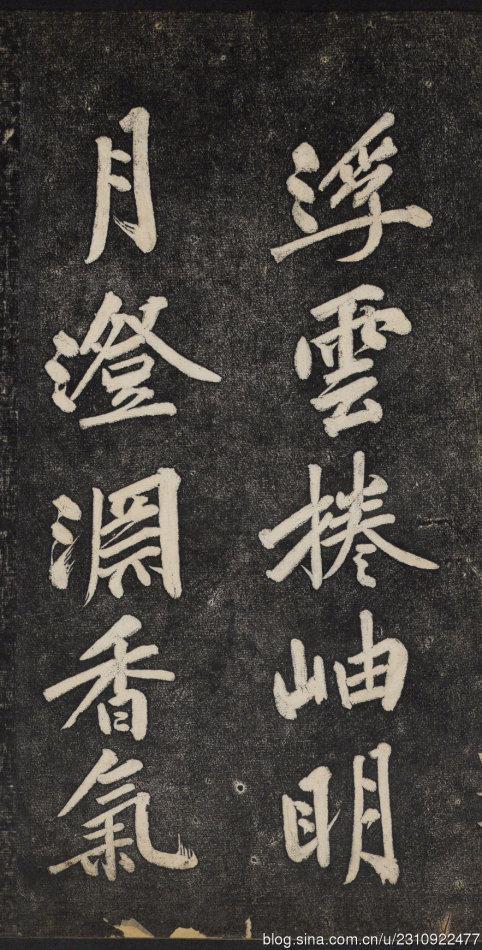 浮雲捲岫明
月澄淵香氣
blog.sina.com.cn/u/2310922477